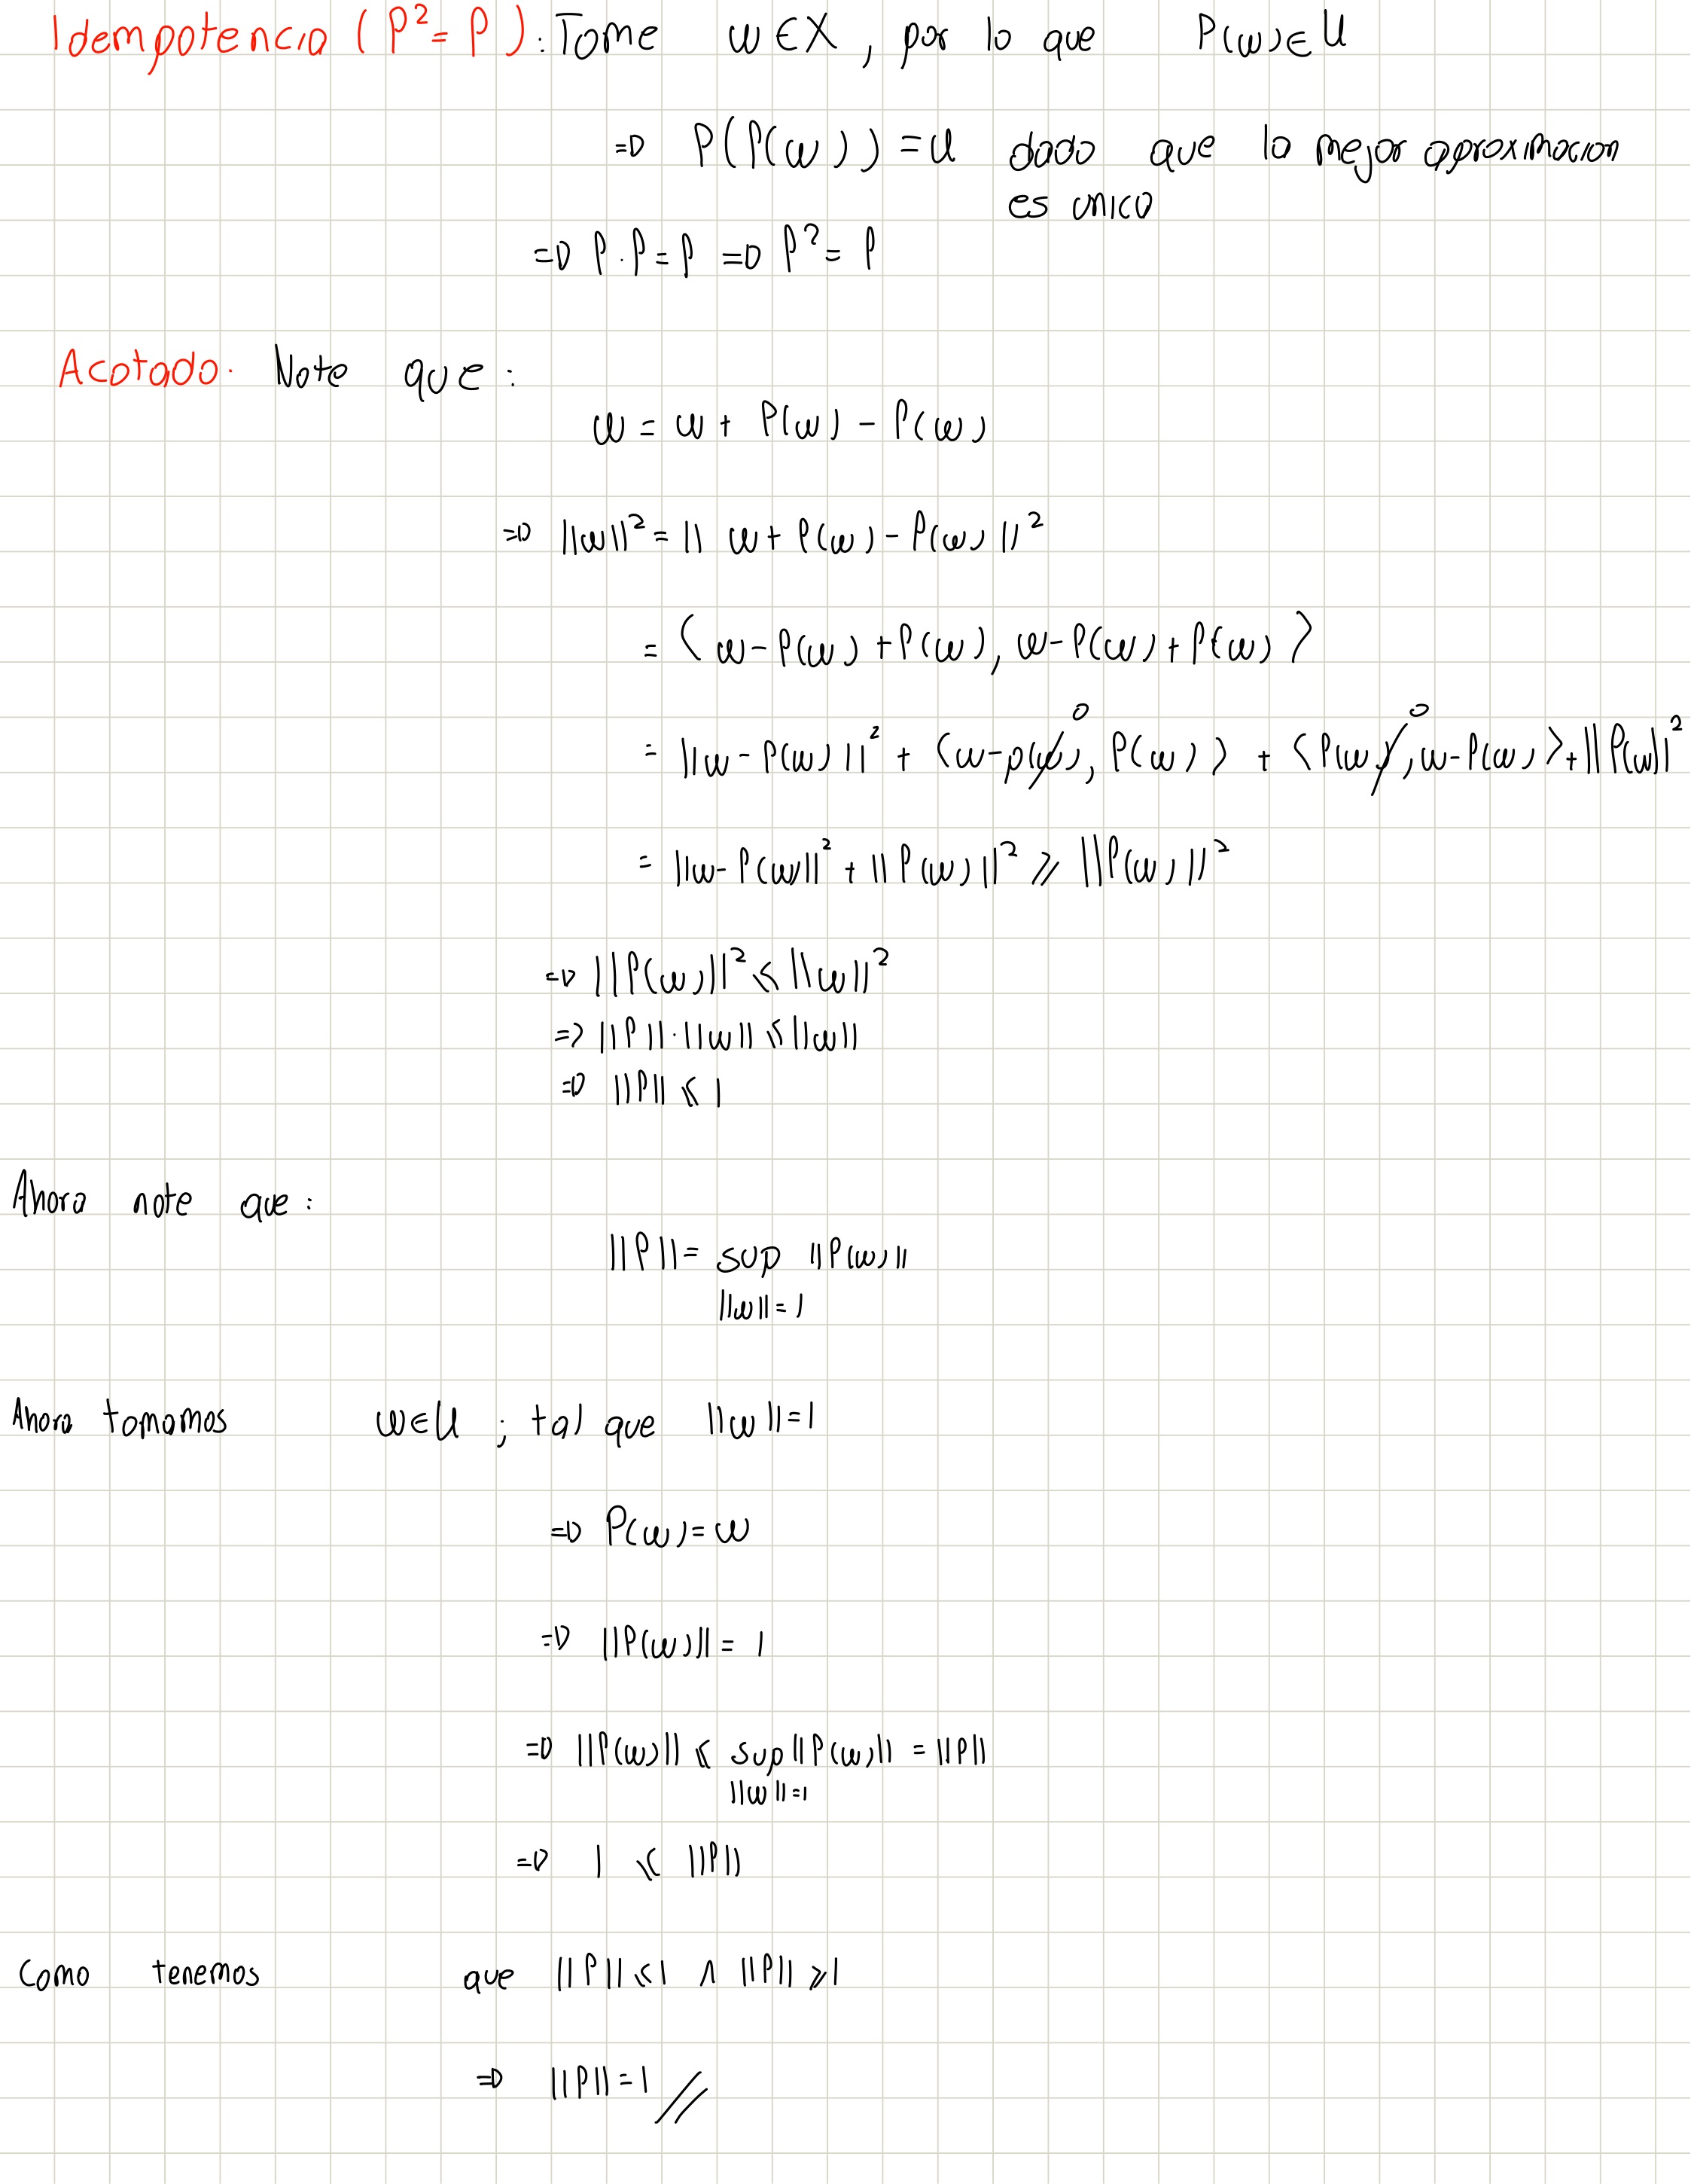 Idempotencia (P² = P): Tome w ∈ X, por lo que P(w) ∈ U
⇒ P(P(w)) = u dado que la mejor aproximacion
es unica
⇒ P·P = P ⇒ P² = P
Acotado. Note que:
w = w + P(w) - P(w)
⇒ ||w||² = || w + P(w) - P(w) ||²
= ⟨ w - P(w) + P(w), w - P(w) + P(w) ⟩
= ||w - P(w)||² + ⟨w - p(w), P(w)⟩ 0 + ⟨P(w), w - P(w)⟩ 0 + ||P(w)||²
= ||w - P(w)||² + ||P(w)||² ⩾ ||P(w)||²
⇒ ||P(w)||² ⩽ ||w||²
⇒ ||P||·||w|| ⩽ ||w||
⇒ ||P|| ⩽ 1
Ahora note que:
||P|| = sup ||P(w)||
||w|| = 1
Ahora tomamos w ∈ U ; tal que ||w|| = 1
⇒ P(w) = w
⇒ ||P(w)|| = 1
⇒ ||P(w)|| ⩽ sup ||P(w)|| = ||P||
||w|| = 1
⇒ 1 ⩽ ||P||
Como tenemos que ||P|| ⩽ 1 ∧ ||P|| ⩾ 1
⇒ ||P|| = 1 //